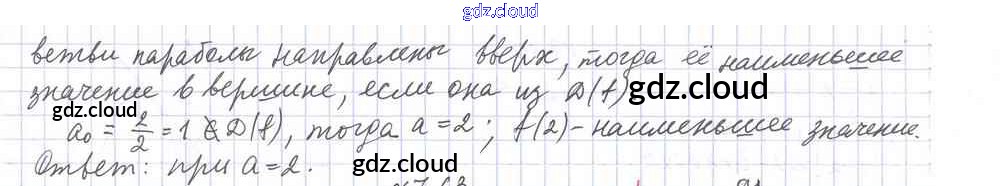 gdz.cloud
ветви параболы направлены вверх, тогда её наименьшее
значение в вершине, если она из D(f)
gdz.cloud
gdz.cloud
a₀ = 2/2 = 1 ∉ D(f), тогда a = 2; f(2) - наименьшее значение.
Ответ: при a = 2.
gdz.cloud